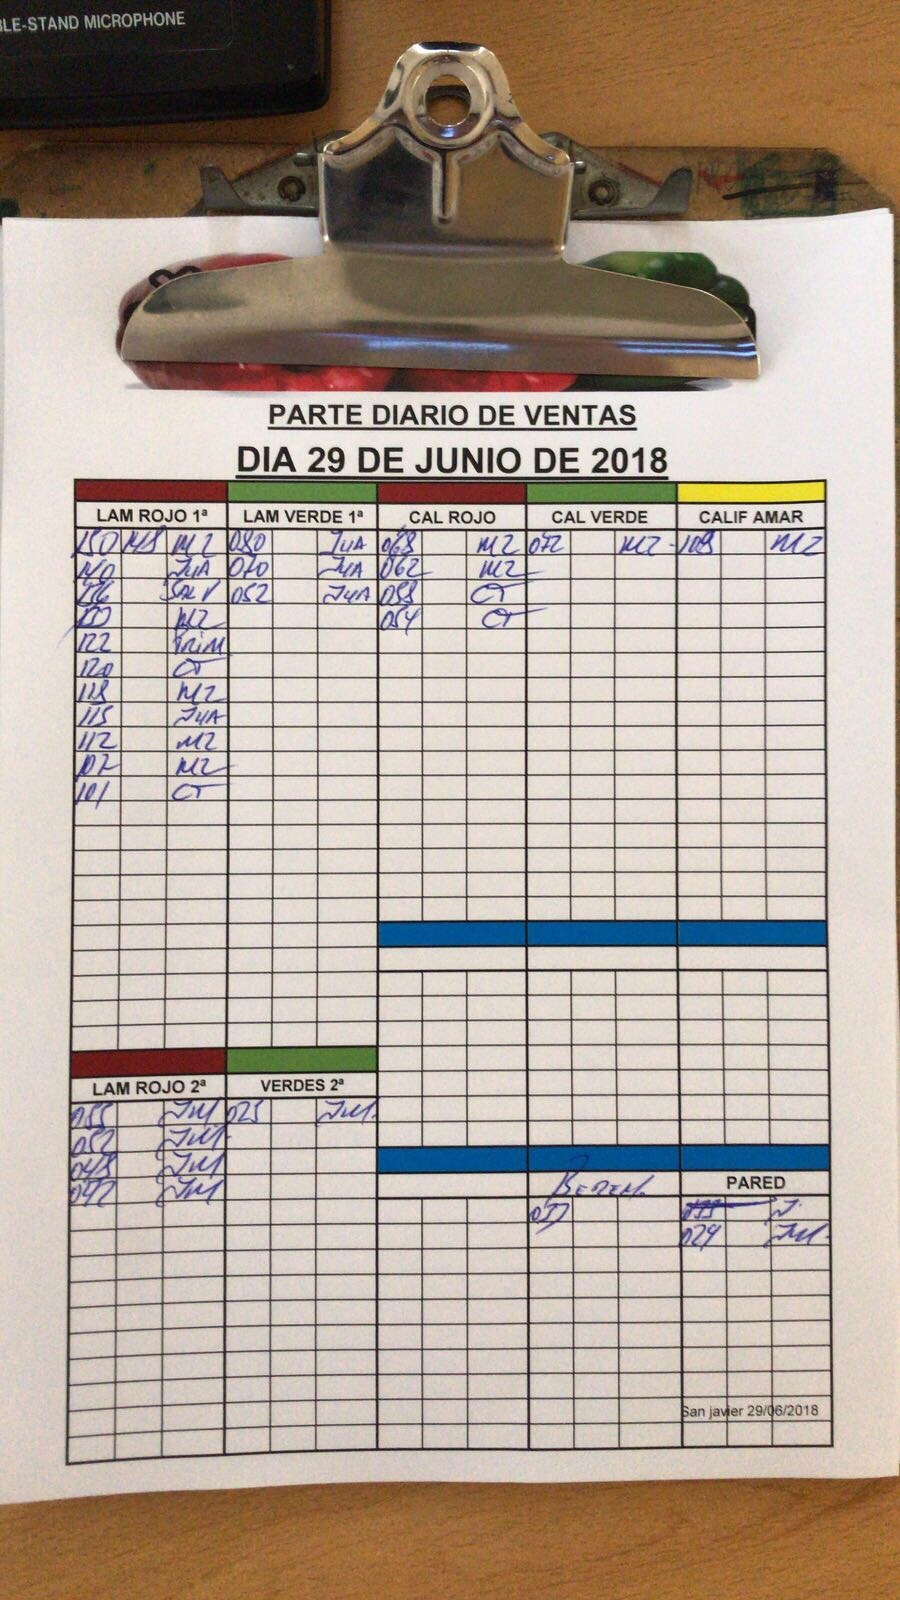 BLE-STAND MICROPHONE
PARTE DIARIO DE VENTAS
DIA 29 DE JUNIO DE 2018
LAM ROJO 1ª LAM VERDE 1ª CAL ROJO CAL VERDE CALIF AMAR
150 148 MZ 080 JUA 068 MZ 072 MZ 108 MZ
140 JUA 070 JUA 062 MZ
SALV 052 JUA 058 CT
MZ 054 CT
122 PRIM
120 CT
118 MZ
115 JUA
112 MZ
107 MZ
101 CT
LAM ROJO 2ª VERDES 2ª
055 JM 025 JM.
052 JM.
048 JM
042 JM
PARED
024 JM.
San javier 29/06/2018